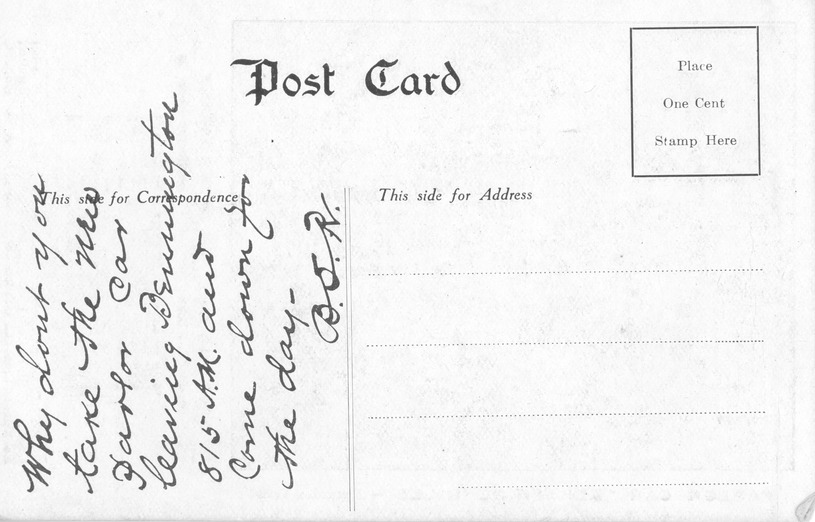 Post Card
Place
One Cent
Stamp Here
This side for Correspondence
This side for Address
Why dont you
take the new
Parlor Car
leaving Bennington
815 A.M. and
Come down for
the day-
B.S.R.